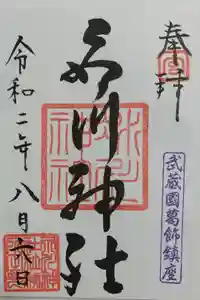 奉拝
武蔵國葛飾鎮座
氷川神社
令和二年八月六日